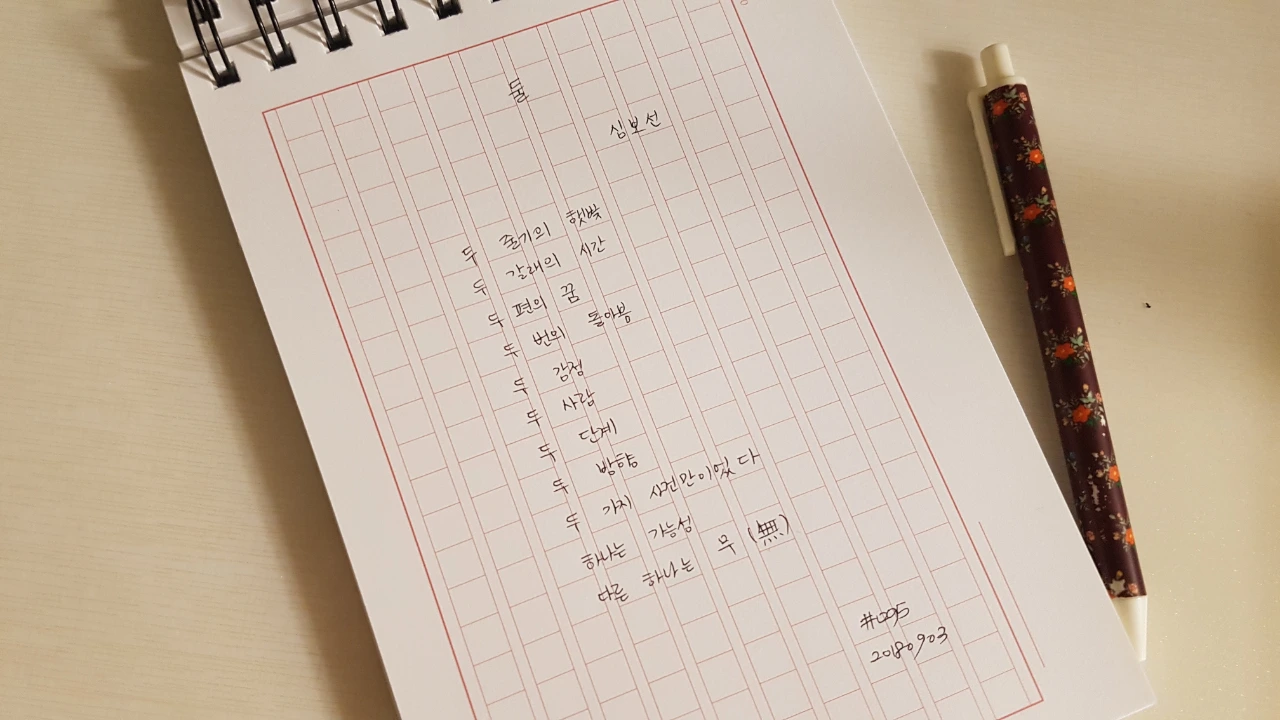 둘
심보선
두 줄기의 햇빛
두 갈래의 시간
두 편의 꿈
두 번의 돌아봄
두 감정
두 사람
두 단계
두 방향
두 가지 사건만이 있다
하나는 가능성
다른 하나는 무(無)
#095
20180903